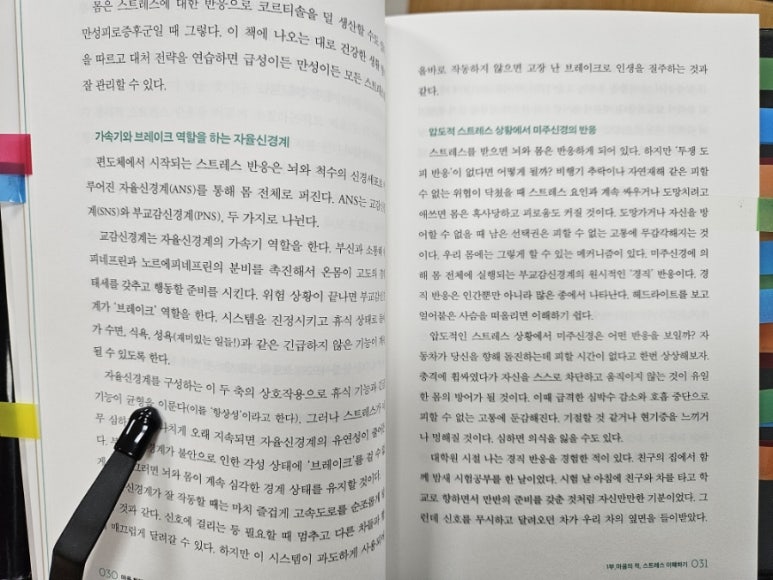 몸은 스트레스에 대한 반응으로 코르티솔을 덜 생산할 수도
만성피로증후군일 때 그렇다. 이 책에 나오는 대로 건강한 생활
을 따르고 대처 전략을 연습하면 급성이든 만성이든 모든 스트레스
잘 관리할 수 있다.
가속기와 브레이크 역할을 하는 자율신경계
편도체에서 시작되는 스트레스 반응은 뇌와 척수의 신경세포로
루어진 자율신경계(ANS)를 통해 몸 전체로 퍼진다. ANS는 교감신
계(SNS)와 부교감신경계(PNS), 두 가지로 나뉜다.
교감신경계는 자율신경계의 가속기 역할을 한다. 부신과 소통해
피네프린과 노르에피네프린의 분비를 촉진해서 온몸이 고도의
태세를 갖추고 행동할 준비를 시킨다. 위험 상황이 끝나면 부교감신
계가 '브레이크' 역할을 한다. 시스템을 진정시키고 휴식 상태로
가 수면, 식욕, 성욕(재미있는 일들!)과 같은 긴급하지 않은 기능이
될 수 있도록 한다.
자율신경계를 구성하는 이 두 축의 상호작용으로 휴식 기능과
기능이 균형을 이룬다(이를 '항상성'이라고 한다). 그러나 스트레스가
무 심하 나치게 오래 지속되면 자율신경계의 유연성이 줄어
다. 경계가 불안으로 인한 각성 상태에 '브레이크'를 걸 수
그러면 뇌와 몸이 계속 심각한 경계 상태를 유지할 것이다.
신경계가 잘 작동할 때는 마치 즐겁게 고속도로를 순조롭게
것과 같다. 신호에 걸리는 등 필요할 때 멈추고 다른 차들과
매끄럽게 달려갈 수 있다. 하지만 이 시스템이 과도하게 사용되어
030 마음
올바로 작동하지 않으면 고장 난 브레이크로 인생을 질주하는 것과
같다.
압도적 스트레스 상황에서 미주신경의 반응
스트레스를 받으면 뇌와 몸은 반응하게 되어 있다. 하지만 '투쟁 도
피 반응'이 없다면 어떻게 될까? 비행기 추락이나 자연재해 같은 피할
수 없는 위협이 닥쳤을 때 스트레스 요인과 계속 싸우거나 도망치려고
애쓰면 몸은 혹사당하고 괴로움도 커질 것이다. 도망가거나 자신을 방
어할 수 없을 때 남은 선택권은 피할 수 없는 고통에 무감각해지는 것
이다. 우리 몸에는 그렇게 할 수 있는 메커니즘이 있다. 미주신경에 의
해 몸 전체에 실행되는 부교감신경계의 원시적인 '경직' 반응이다. 경
직 반응은 인간뿐만 아니라 많은 종에서 나타난다. 헤드라이트를 보고
얼어붙은 사슴을 떠올리면 이해하기 쉽다.
압도적인 스트레스 상황에서 미주신경은 어떤 반응을 보일까? 자
동차가 당신을 향해 돌진하는데 피할 시간이 없다고 한번 상상해보자.
충격에 휩싸였다가 자신을 스스로 차단하고 움직이지 않는 것이 유일
한 몸의 방어가 될 것이다. 이때 급격한 심박수 감소와 호흡 중단으로
피할 수 없는 고통에 둔감해진다. 기절할 것 같거나 현기증을 느끼거
나 멍해질 것이다. 심하면 의식을 잃을 수도 있다.
대학원 시절 나는 경직 반응을 경험한 적이 있다. 친구의 집에서 함
께 밤새 시험공부를 한 날이었다. 시험 날 아침에 친구와 차를 타고 학
교로 향하면서 만반의 준비를 갖춘 것처럼 자신만만한 기분이었다. 그
런데 신호를 무시하고 달려오던 차가 우리 차의 옆면을 들이받았다.
1부. 마음의 적, 스트레스 이해하기 031